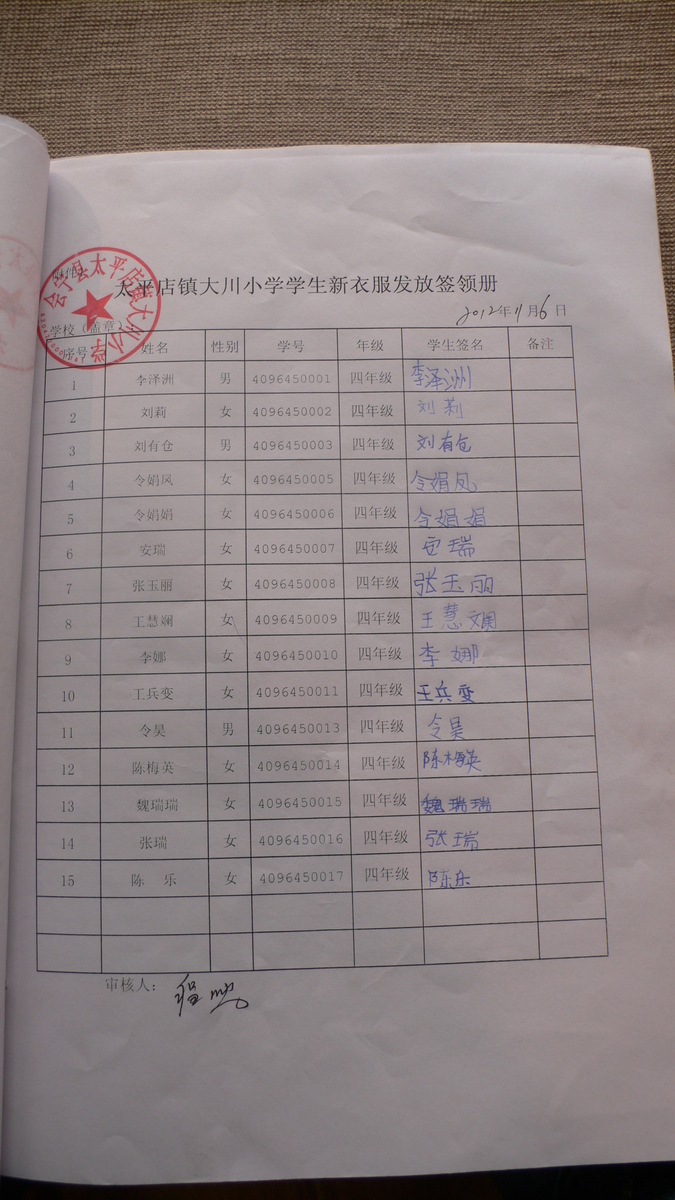 附件
太平店镇大川小学学生新衣服发放签领册
会宁县太平店镇大川小学
2012年11月6日
学校（盖章）
序号 姓名 性别 学号 年级 学生签名 备注
1 李泽洲 男 4096450001 四年级 李泽洲
2 刘莉 女 4096450002 四年级 刘莉
3 刘有仓 男 4096450003 四年级 刘有仓
4 令娟风 女 4096450005 四年级 令娟凤
5 令娟娟 女 4096450006 四年级 令娟娟
6 安瑞 女 4096450007 四年级 安瑞
7 张玉丽 女 4096450008 四年级 张玉丽
8 王慧斓 女 4096450009 四年级 王慧斓
9 李娜 女 4096450010 四年级 李娜
10 工兵变 女 4096450011 四年级 王兵变
11 令昊 男 4096450013 四年级 令昊
12 陈梅英 女 4096450014 四年级 陈梅英
13 魏瑞瑞 女 4096450015 四年级 魏瑞瑞
14 张瑞 女 4096450016 四年级 张瑞
15 陈 乐 女 4096450017 四年级 陈乐
审核人：